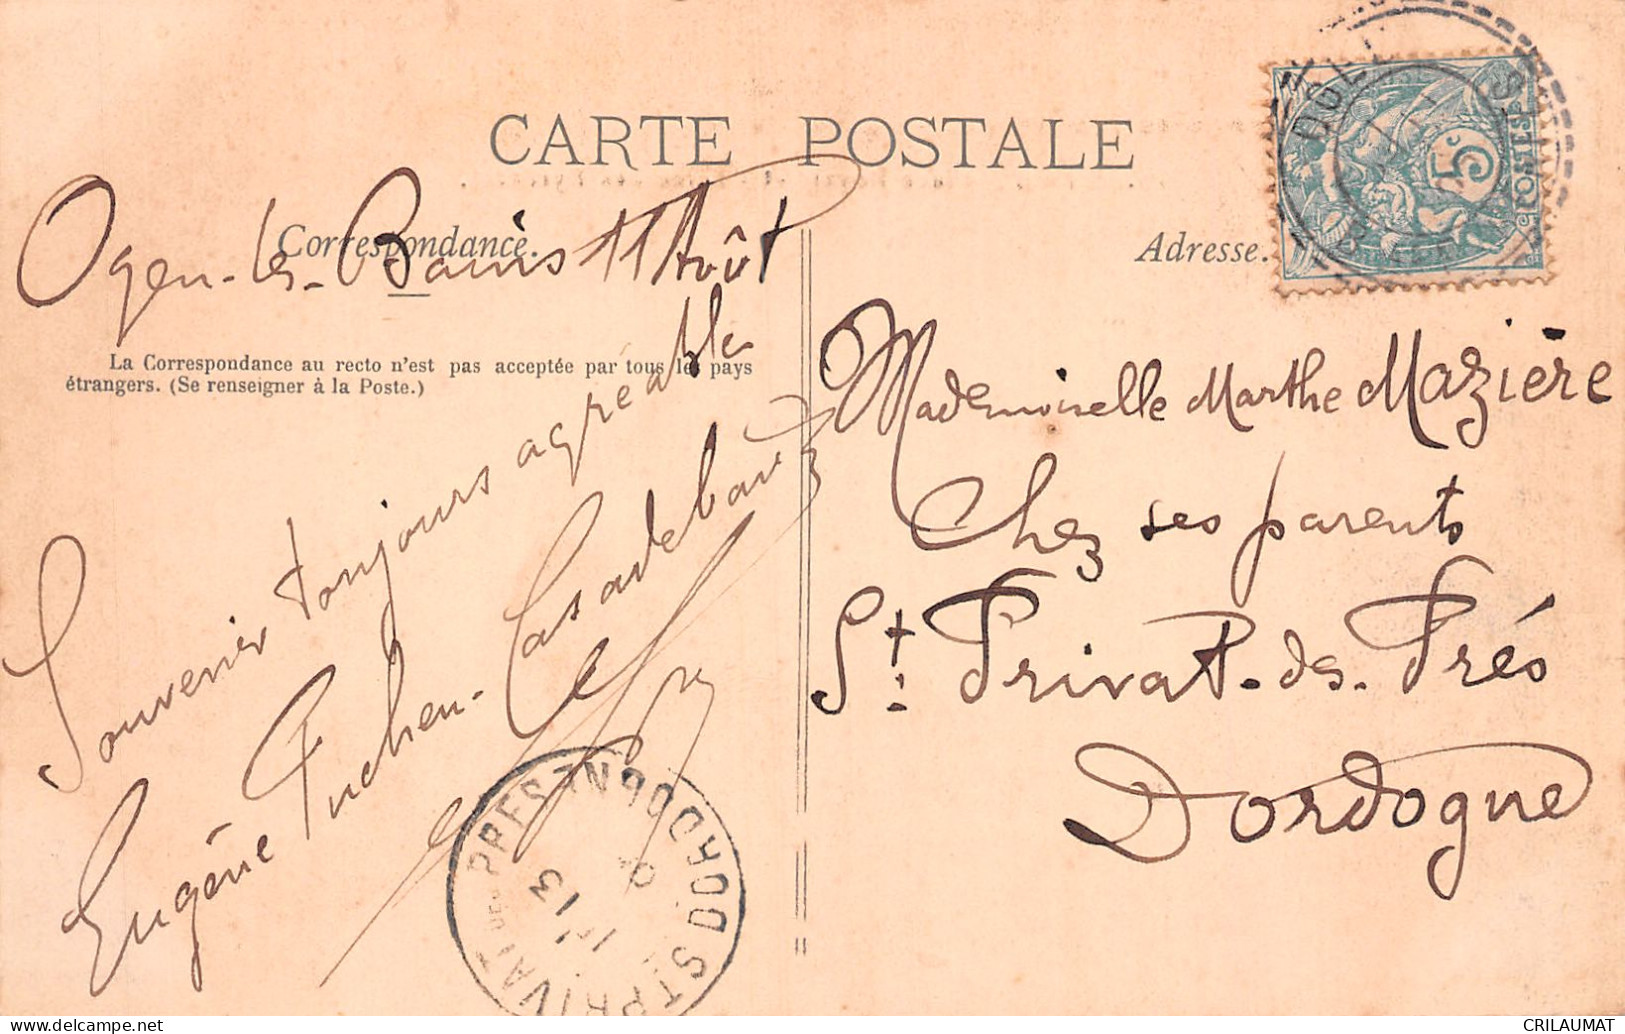 CARTE POSTALE
Correspondance.
Adresse.
Ogeu-les-Bains 11 Août
La Correspondance au recto n'est pas acceptée par tous les pays
étrangers. (Se renseigner à la Poste.)
Souvenir toujours agréable
Eugénie Pucheu-Casadebaig
Mademoiselle Marthe Mazière
Chez ses parents
St. Privat-des-Prés
Dordogne
5c
POSTES
ST PRIVAT DES PRES DORDOGNE
13
CRILAUMAT